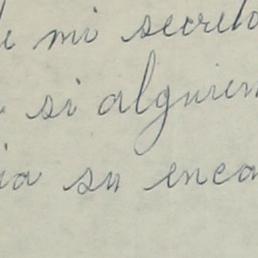 de mi secreto
si alguien
ia su enca